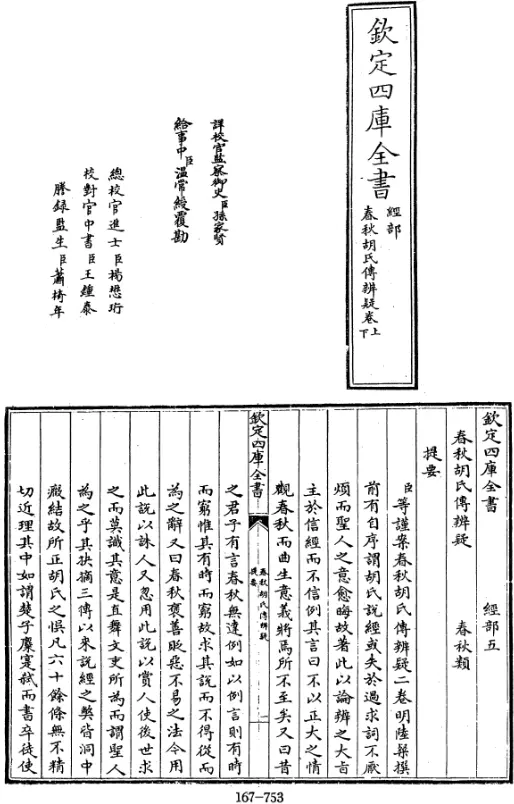 欽定四庫全書
經部
春秋胡氏傳辨疑卷上下
詳校官監察御史臣孫家賢
給事中臣溫常綬覆勘
總校官進士臣楊懋珩
校對官中書臣王鍾泰
謄錄監生臣蕭椅年
欽定四庫全書 經部五
春秋胡氏傳辨疑 春秋類
提要
臣等謹案春秋胡氏傳辨疑二卷明陸粲撰
前有自序謂胡氏說經或失於過求詞不厭
煩而聖人之意愈晦故著此以論辨之大旨
主於信經而不信例其言曰不以正大之情
觀春秋而曲生意義將焉所不至矣又曰昔
欽定四庫全書
春秋胡氏傳辨疑
提要
一
之君子有言春秋無達例如以例言則有時
而窮惟其有時而窮故求其說而不得從而
為之辭又曰春秋褒善貶惡不易之法今用
此說以誅人又忽用此說以賞人使後世求
之而莫識其意是直舞文吏所為而謂聖人
為之乎其抉摘三傳以來說經之弊皆洞中
癥結故所正胡氏之悞凡六十餘條無不精
切近理其中如謂楚子麇寔弒而書卒徒使
167-753